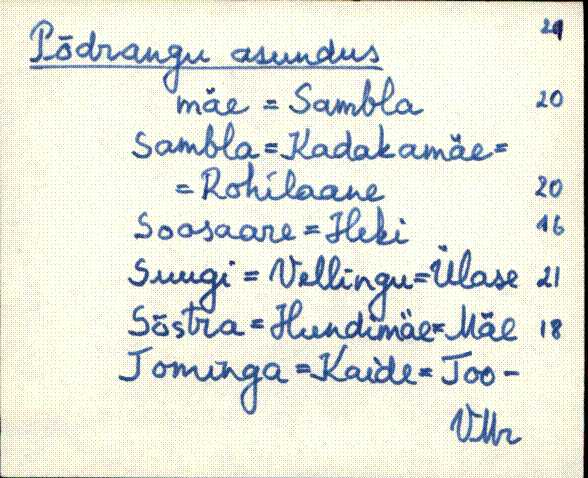 Põdrangu asundus 21
mäe = Sambla 20
Sambla = Kadakamäe =
= Rohilaane 20
Soosaare = Heki 16
Suugi = Vellingu = Ülase 21
Sõstra = Hundimäe = Mäe 18
Tominga = Kaide = Too-
VMr